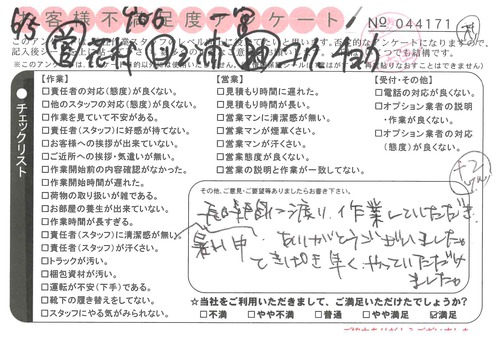 お客様不満足度アンケート!
№ 044171
チェックリスト
【作業】
□責任者の対応(態度)が良くない。
□他のスタッフの対応(態度)が良くない。
□作業を見ていて不安がある。
□責任者(スタッフ)に好感が持てない。
□お客様への挨拶が出来ていない。
□ご近所への挨拶・気遣いが無い。
□作業開始前の内容確認がなかった。
□作業開始時間が遅れた。
□荷物の取り扱いが雑である。
□お部屋の養生が出来ていない。
□作業時間が長すぎる。
□責任者(スタッフ)に清潔感が無い。
□責任者(スタッフ)が汗くさい。
□トラックが汚い。
□梱包資材が汚い。
□運転が不安(下手)である。
□靴下の履き替えをしてない。
□スタッフにやる気がみられない。
【営業】
□見積もり時間に遅れた。
□見積もり時間が長い。
□営業マンに清潔感が無い。
□営業マンが煙草くさい。
□営業マンが汗くさい。
□営業態度が良くない。
□営業の説明と作業が一致してない。
【受付・その他】
□電話の対応が良くない。
□オプション業者の説明
・作業が良くない。
□オプション業者の対応
(態度)が良くない。
その他、ご意見・ご要望等ありましたらお書き下さい。
長時間に渡り、作業していただき
暑い中、ありがとうございました。
てきぱき早く、やっていただけ
ました。
☆当社をご利用いただきまして、ご満足いただけたでしょうか?
□不満 □やや不満 □普通 □やや満足 ☑満足